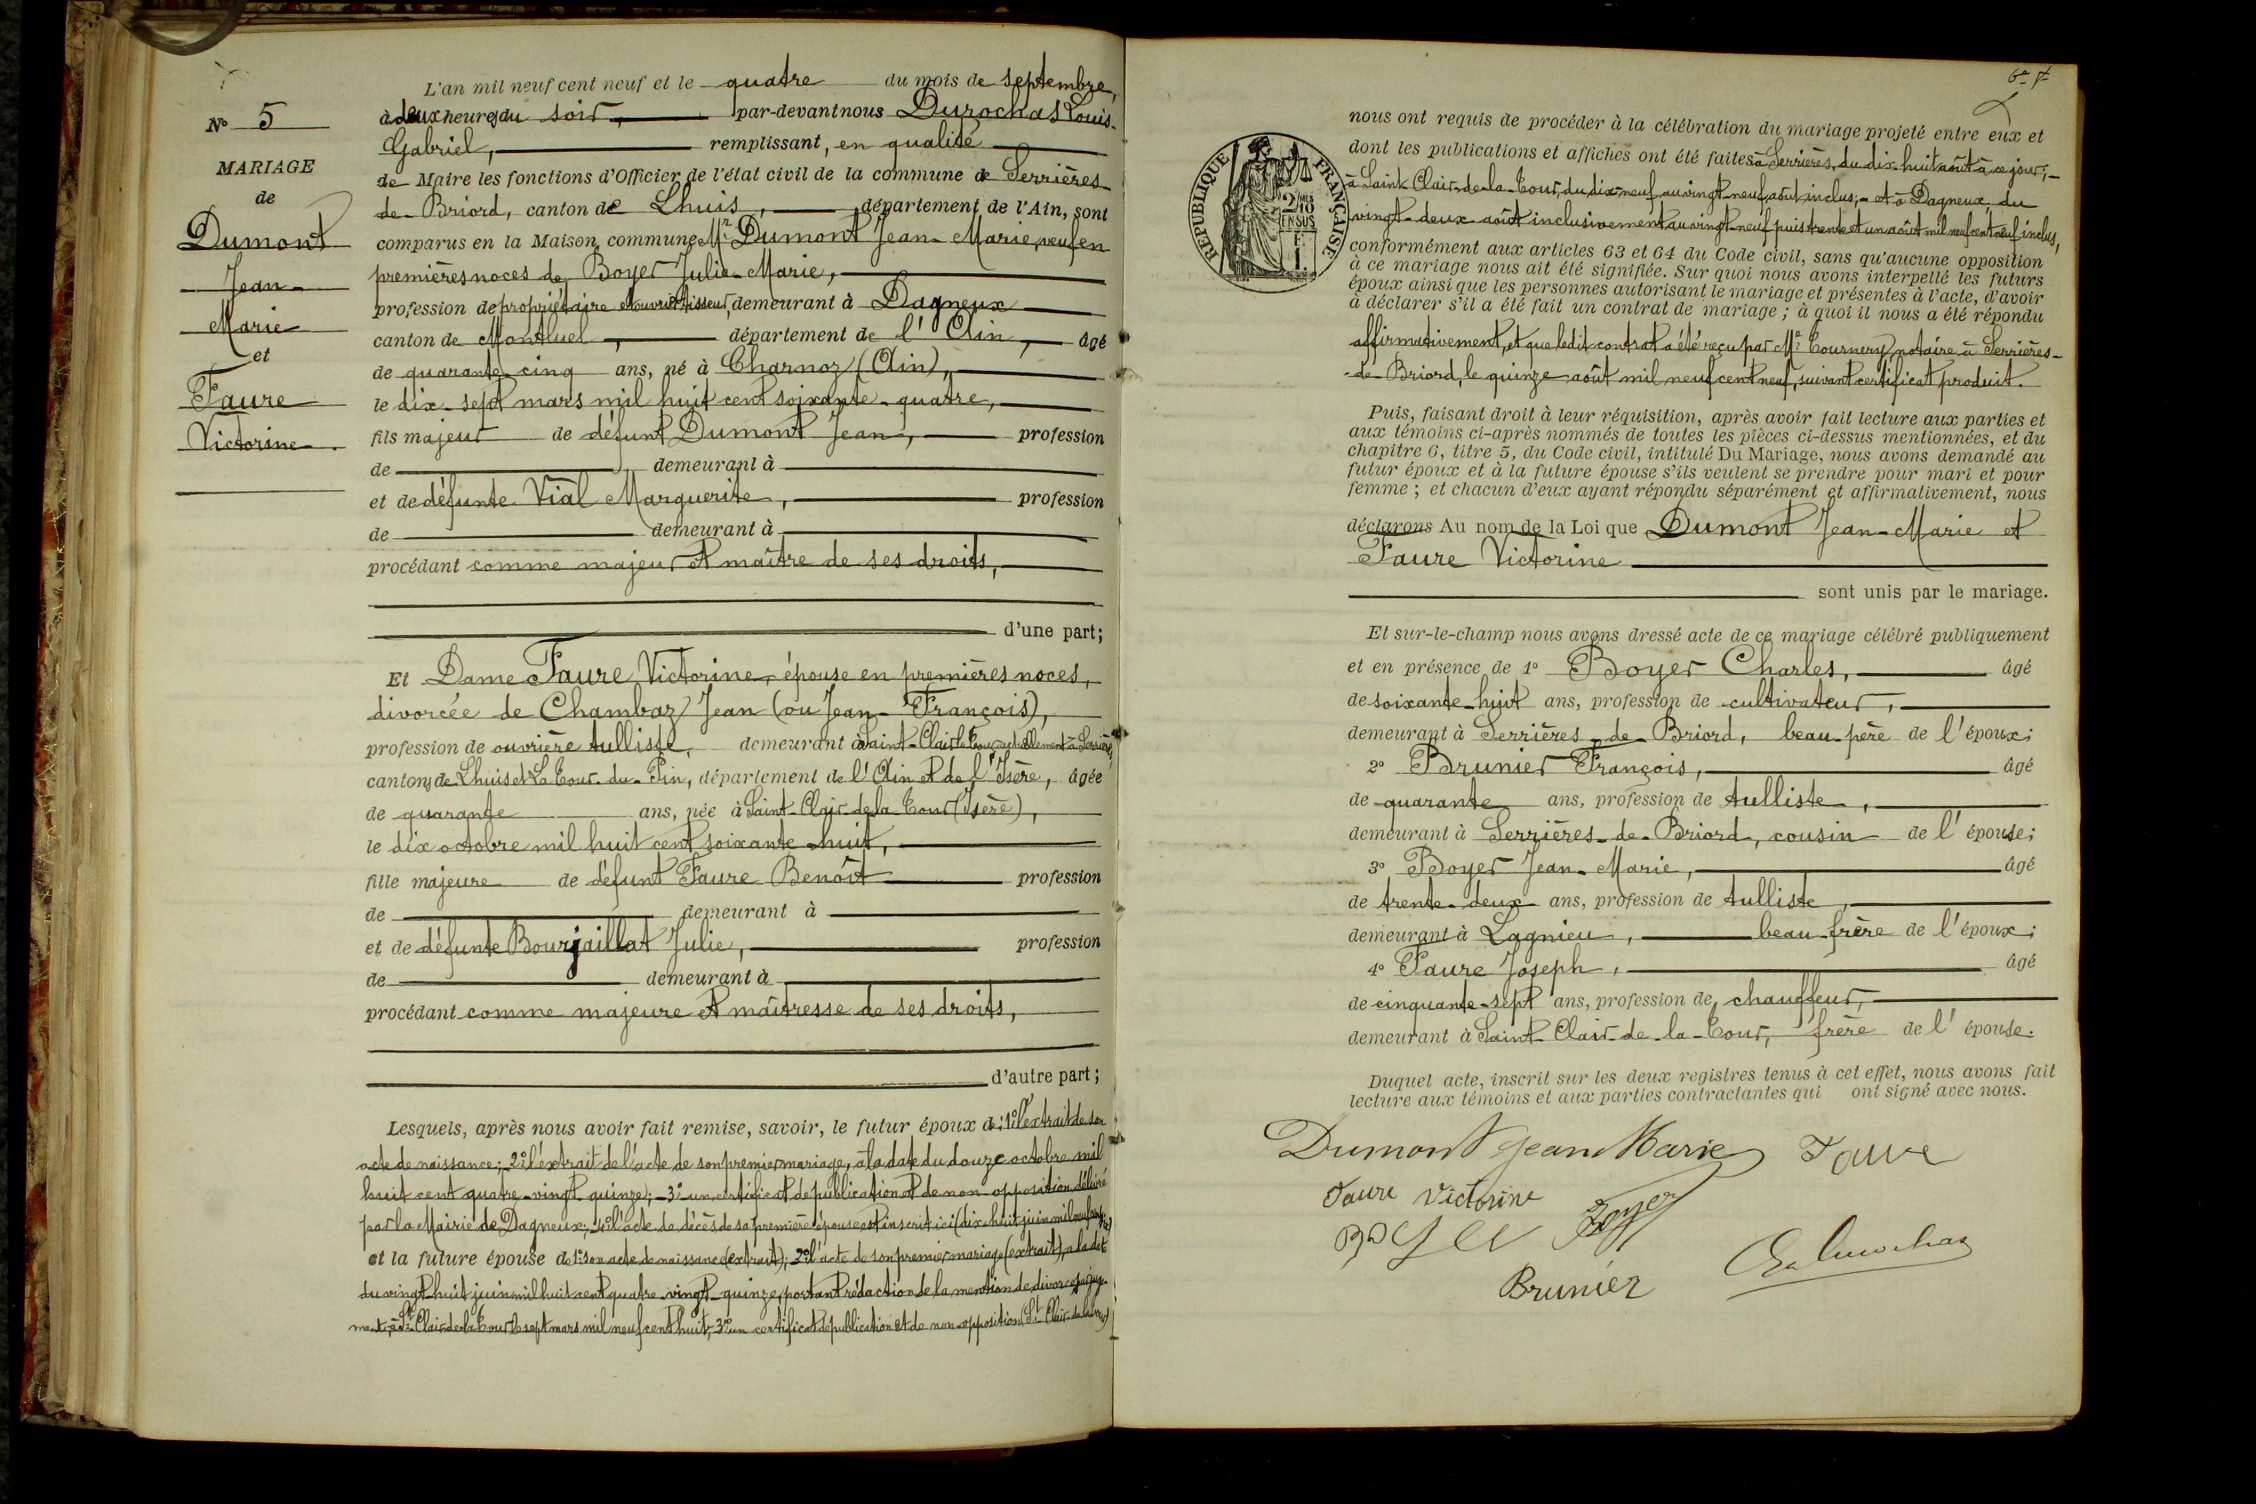 N° 5
MARIAGE
de
Dumont
Jean-
Marie
et
Faure
Victorine.
L'an mil neuf cent neuf et le quatre du mois de septembre,
à deux heures du soir, par-devant nous Durochat Louis-
Gabriel, remplissant, en qualité
de Maire les fonctions d'Officier de l'état civil de la commune de Serrières-
de-Briord, canton de Lhuis, département de l'Ain, sont
comparus en la Maison commune Mr Dumont Jean-Marie, veuf en
premières noces de Boyer Julie-Marie,
profession de propriétaire et ouvrier tisseur, demeurant à Dagneux
canton de Montluel, département de l'Ain, âgé
de quarante-cinq ans, né à Charnoz (Ain),
le dix-sept mars mil huit cent soixante-quatre,
fils majeur de défunt Dumont Jean, profession
de demeurant à
et de défunte Vial Marguerite, profession
de demeurant à
procédant comme majeur et maître de ses droits,
d'une part;
Et Dame Faure Victorine, épouse en premières noces,
divorcée de Chambaz Jean (ou Jean-François),
profession de ouvrière tulliste, demeurant à Saint-Clair la Tour actuellement à Serrières
cantons de Lhuis et La Tour-du-Pin, département de l'Ain et de l'Isère, âgée
de quarante ans, née à Saint-Clair-de-la-Tour (Isère),
le dix octobre mil huit cent soixante-huit,
fille majeure de défunt Faure Benoît profession
de demeurant à
et de défunte Bourjaillat Julie, profession
de demeurant à
procédant comme majeure et maîtresse de ses droits,
d'autre part;
Lesquels, après nous avoir fait remise, savoir, le futur époux de: 1° l'extrait de son
acte de naissance; 2° l'extrait de l'acte de son premier mariage, à la date du douze octobre mil
huit cent quatre-vingt-quinze; - 3° un certificat de publication et de non-opposition délivré
par la Mairie de Dagneux; 4° l'acte de décès de sa première épouse est inscrit ici (dix-huit juin mil neuf
et la future épouse de 1° son acte de naissance (extrait); 2° l'acte de son premier mariage (extrait), à la date
du vingt-huit juin mil huit cent quatre-vingt-quinze, portant rédaction de la mention de divorce, juge-
ment, à St Clair-de-la-Tour le sept mars mil neuf cent huit, 3° un certificat de publication et de non-opposition (St Clair-de-la-Tour)
nous ont requis de procéder à la célébration du mariage projeté entre eux et
dont les publications et affiches ont été faites à Serrières, du dix-huit août à ce jour;-
à Saint-Clair-de-la-Tour, du dix-neuf au vingt-neuf août inclus;- et à Dagneux, du
vingt-deux août inclusivement au vingt-neuf puis trente et un août mil neuf cent neuf inclus,
conformément aux articles 63 et 64 du Code civil, sans qu'aucune opposition
à ce mariage nous ait été signifiée. Sur quoi nous avons interpellé les futurs
époux ainsi que les personnes autorisant le mariage et présentes à l'acte, d'avoir
à déclarer s'il a été fait un contrat de mariage; à quoi il nous a été répondu
affirmativement, et que ledit contrat a été reçu par Me Tournery, notaire à Serrières-
de-Briord, le quinze août mil neuf cent neuf, suivant certificat produit.
RÉPUBLIQUE FRANÇAISE
2/10
EN SUS
Puis, faisant droit à leur réquisition, après avoir fait lecture aux parties et
aux témoins ci-après nommés de toutes les pièces ci-dessus mentionnées, et du
chapitre 6, titre 5, du Code civil, intitulé Du Mariage, nous avons demandé au
futur époux et à la future épouse s'ils veulent se prendre pour mari et pour
femme; et chacun d'eux ayant répondu séparément et affirmativement, nous
déclarons Au nom de la Loi que Dumont Jean-Marie et
Faure Victorine
sont unis par le mariage.
Et sur-le-champ nous avons dressé acte de ce mariage célébré publiquement
et en présence de 1° Boyer Charles, âgé
de soixante-huit ans, profession de cultivateur,
demeurant à Serrières-de-Briord, beau-père de l'époux;
2° Brunier François, âgé
de quarante ans, profession de tulliste,
demeurant à Serrières-de-Briord, cousin de l'épouse;
3° Boyer Jean-Marie, âgé
de trente-deux ans, profession de tulliste,
demeurant à Lagnieu, beau-frère de l'époux;
4° Faure Joseph, âgé
de cinquante-sept ans, profession de chauffeur,
demeurant à Saint-Clair-de-la-Tour, frère de l'épouse.
Duquel acte, inscrit sur les deux registres tenus à cet effet, nous avons fait
lecture aux témoins et aux parties contractantes qui ont signé avec nous.
Dumont Jean Marie Faure
Faure Victorine
Boyer Boyer
Brunier